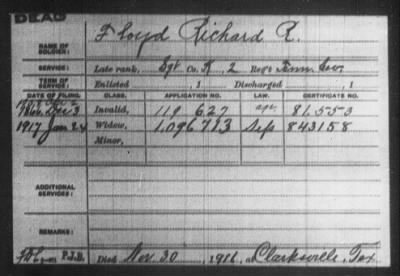 DEAD
NAME OF SOLDIER: Floyd Richard R.
SERVICE: Late rank, Sgt Co. K, 2 Reg't Tenn. Cav.
TERM OF SERVICE: Enlisted , 1 Discharged , 1
DATE OF FILING. CLASS. APPLICATION NO. LAW. CERTIFICATE NO.
Invalid, 119,627 81,553
1917 Jan 24 Widow, 1,096,713 Sep 843158
Minor,
ADDITIONAL SERVICES:
REMARKS:
P.J.B. Died Nov. 30, 1916, at Clarksville, Tex.